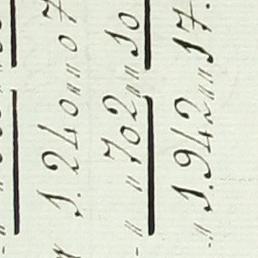 1.240„„07
„ „702„„10
„1.942„„17.